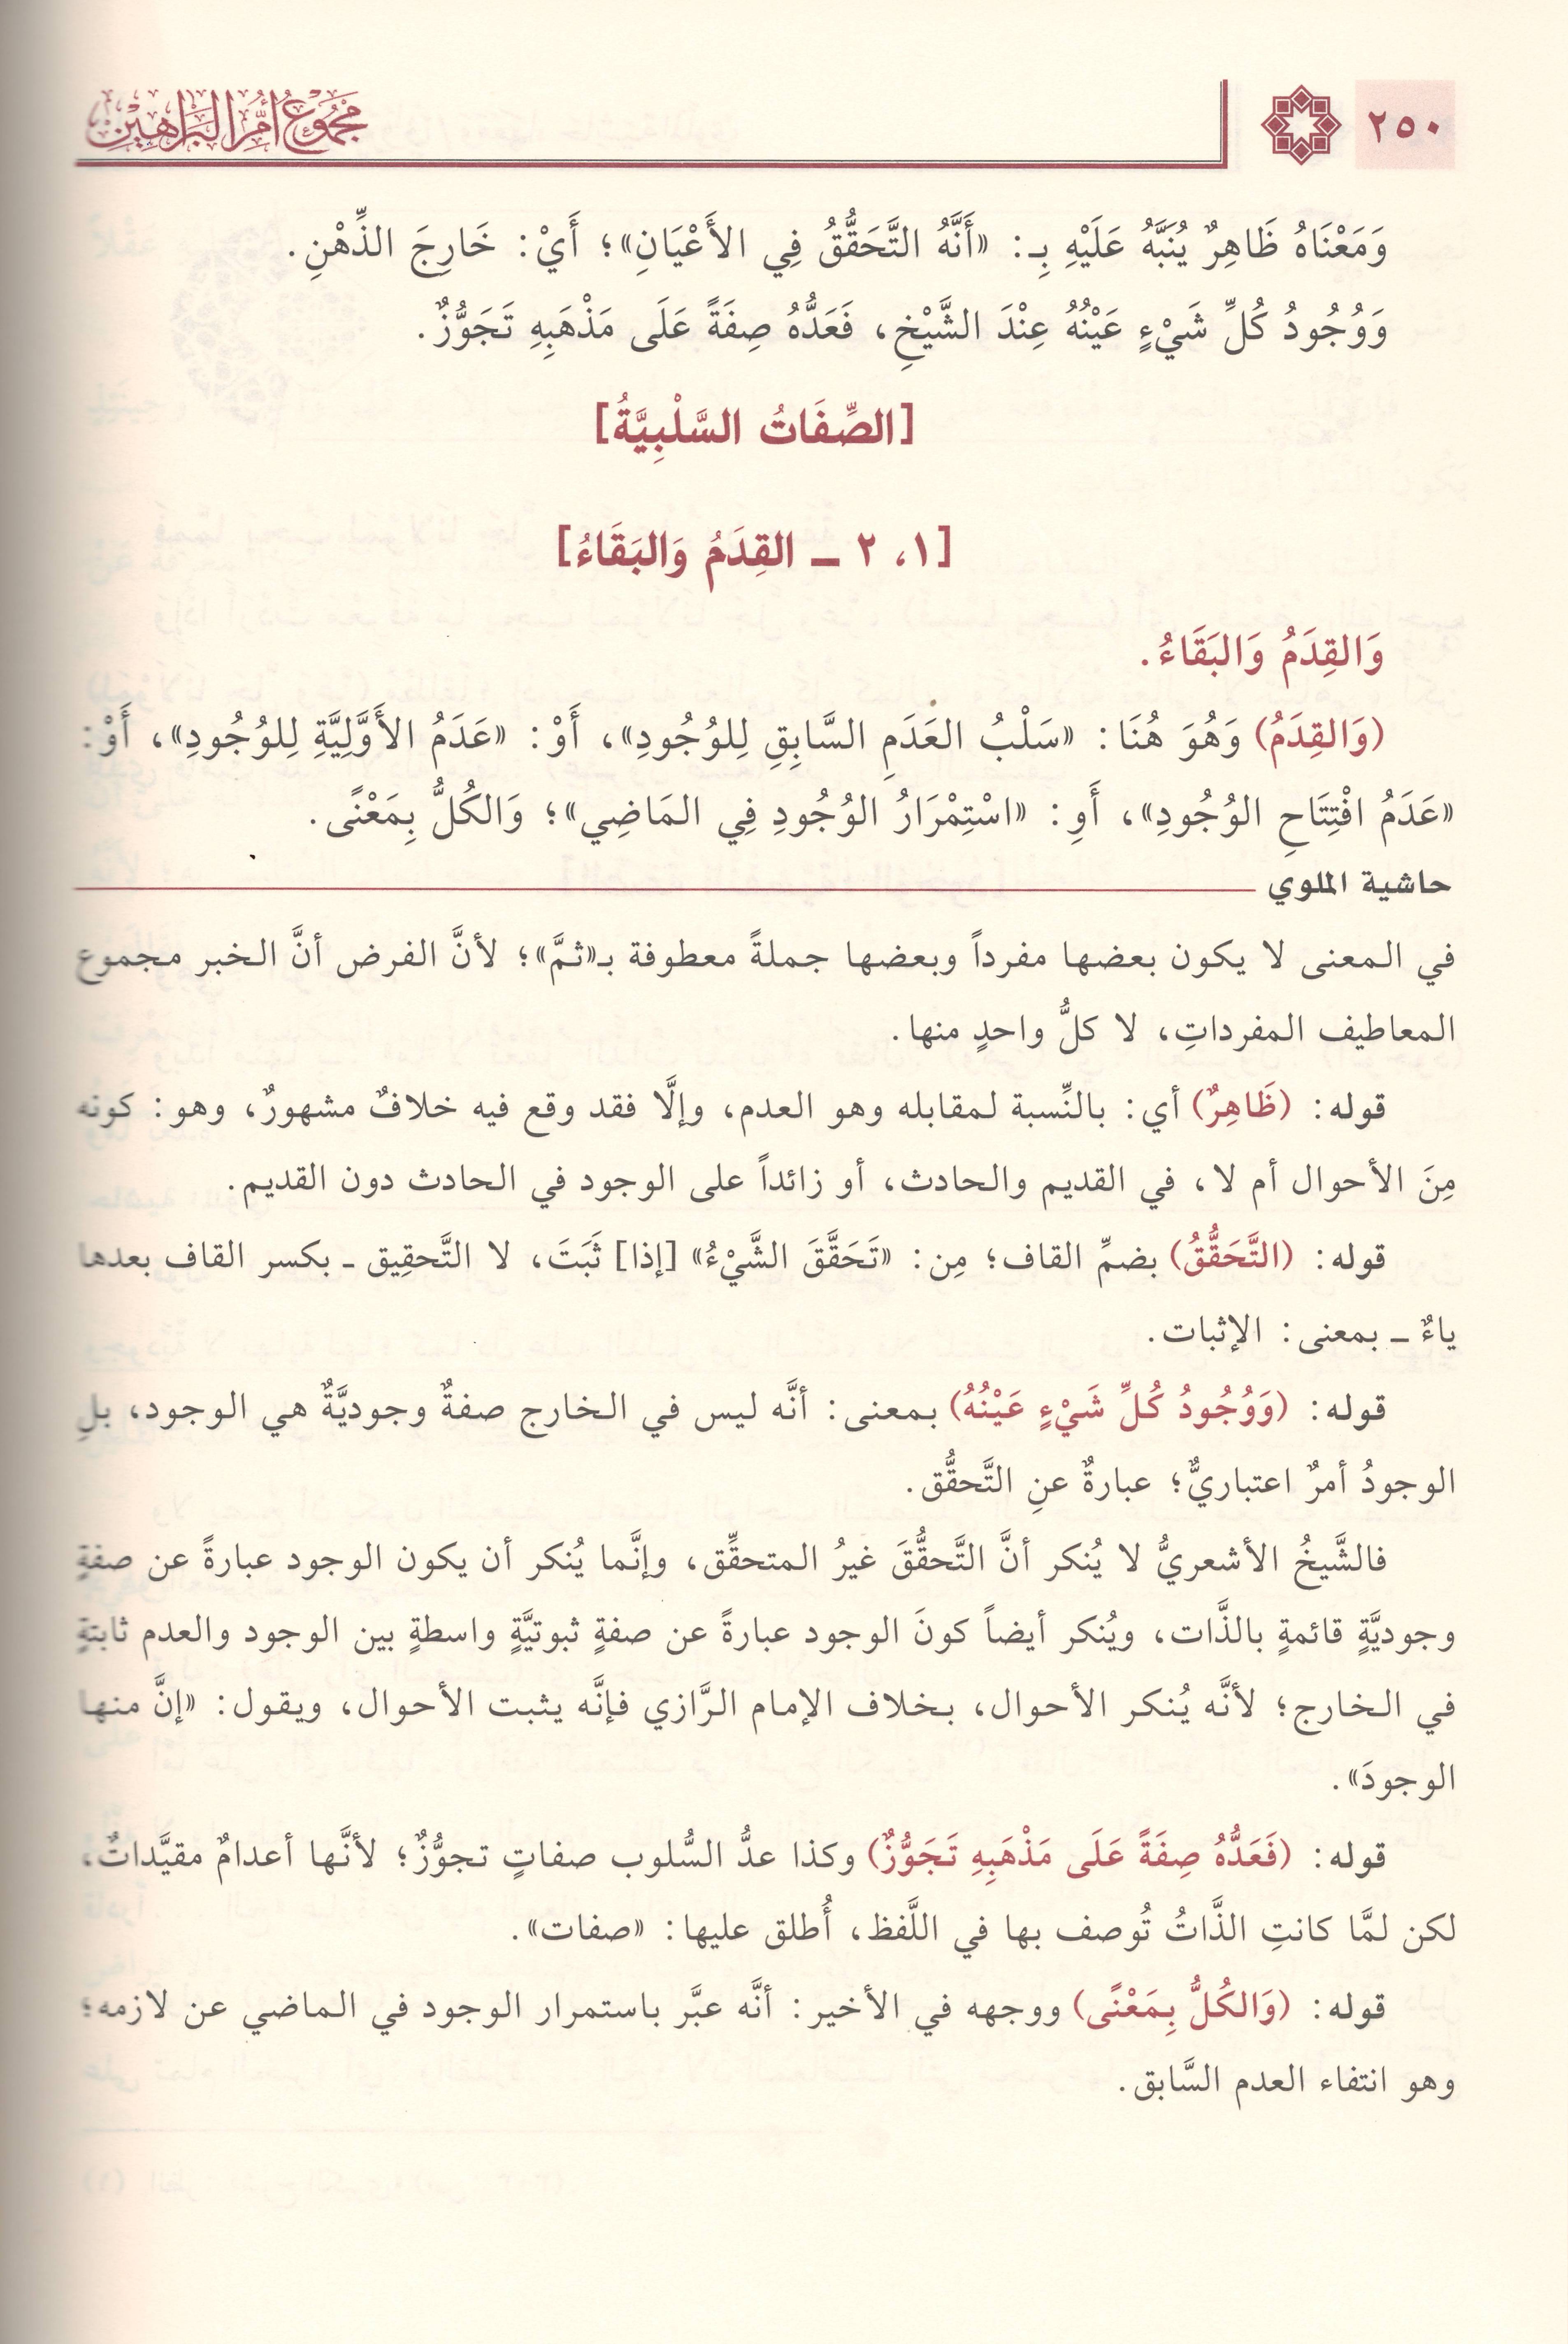 ٢٥٠
مجموع أم البراهين
وَمَعْنَاهُ ظَاهِرٌ يُنَبَّهُ عَلَيْهِ بِـ: «أَنَّهُ التَّحَقُّقُ فِي الأَعْيَانِ»؛ أَيْ: خَارِجَ الذِّهْنِ.
وَوُجُودُ كُلِّ شَيْءٍ عَيْنُهُ عِنْدَ الشَّيْخِ، فَعَدُّهُ صِفَةً عَلَى مَذْهَبِهِ تَجَوُّزٌ.
[الصِّفَاتُ السَّلْبِيَّةُ]
[١، ٢ ـ القِدَمُ وَالبَقَاءُ]
وَالقِدَمُ وَالبَقَاءُ.
(وَالقِدَمُ) وَهُوَ هُنَا: «سَلْبُ العَدَمِ السَّابِقِ لِلوُجُودِ»، أَوْ: «عَدَمُ الأَوَّلِيَّةِ لِلوُجُودِ»، أَوْ:
«عَدَمُ افْتِتَاحِ الوُجُودِ»، أَوِ: «اسْتِمْرَارُ الوُجُودِ فِي المَاضِي»؛ وَالكُلُّ بِمَعْنًى.
حاشية الملوي
في المعنى لا يكون بعضها مفرداً وبعضها جملةً معطوفة بـ«ثمَّ»؛ لأنَّ الفرض أنَّ الخبر مجموع
المعاطيف المفرداتِ، لا كلُّ واحدٍ منها.
قوله: (ظَاهِرٌ) أي: بالنِّسبة لمقابله وهو العدم، وإلَّا فقد وقع فيه خلافٌ مشهورٌ، وهو: كونه
مِنَ الأحوال أم لا، في القديم والحادث، أو زائداً على الوجود في الحادث دون القديم.
قوله: (التَّحَقُّقُ) بضمِّ القاف؛ مِن: «تَحَقَّقَ الشَّيْءُ» [إذا] ثَبَتَ، لا التَّحقِيق ـ بكسر القاف بعدها
ياءٌ ـ بمعنى: الإثبات.
قوله: (وَوُجُودُ كُلِّ شَيْءٍ عَيْنُهُ) بمعنى: أنَّه ليس في الخارج صفةٌ وجوديَّةٌ هي الوجود، بلِ
الوجودُ أمرٌ اعتباريٌّ؛ عبارةٌ عنِ التَّحقُّق.
فالشَّيخُ الأشعريُّ لا يُنكر أنَّ التَّحقُّقَ غيرُ المتحقِّق، وإنَّما يُنكر أن يكون الوجود عبارةً عن صفةٍ
وجوديَّةٍ قائمةٍ بالذَّات، ويُنكر أيضاً كونَ الوجود عبارةً عن صفةٍ ثبوتيَّةٍ واسطةٍ بين الوجود والعدم ثابتةٍ
في الخارج؛ لأنَّه يُنكر الأحوال، بخلاف الإمام الرَّازي فإنَّه يثبت الأحوال، ويقول: «إنَّ منها
الوجودَ».
قوله: (فَعَدُّهُ صِفَةً عَلَى مَذْهَبِهِ تَجَوُّزٌ) وكذا عدُّ السُّلوب صفاتٍ تجوُّزٌ؛ لأنَّها أعدامٌ مقيَّداتٌ،
لكن لمَّا كانتِ الذَّاتُ تُوصف بها في اللَّفظ، أُطلق عليها: «صفات».
قوله: (وَالكُلُّ بِمَعْنًى) ووجهه في الأخير: أنَّه عبَّر باستمرار الوجود في الماضي عن لازمه؛
وهو انتفاء العدم السَّابق.